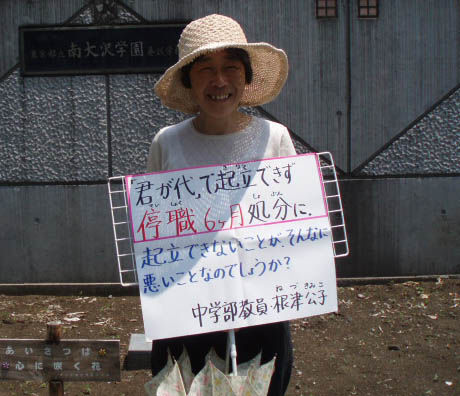 東京都立 南大沢学園
君が代〟で起立できず
きりつ
停職6ヶ月処分に。
ていしょく しょぶん
起立できないことが、そんなに
悪いことなのでしょうか?
中学部教員・根津公子
ねづきみこ
あいさつは
心に咲く花